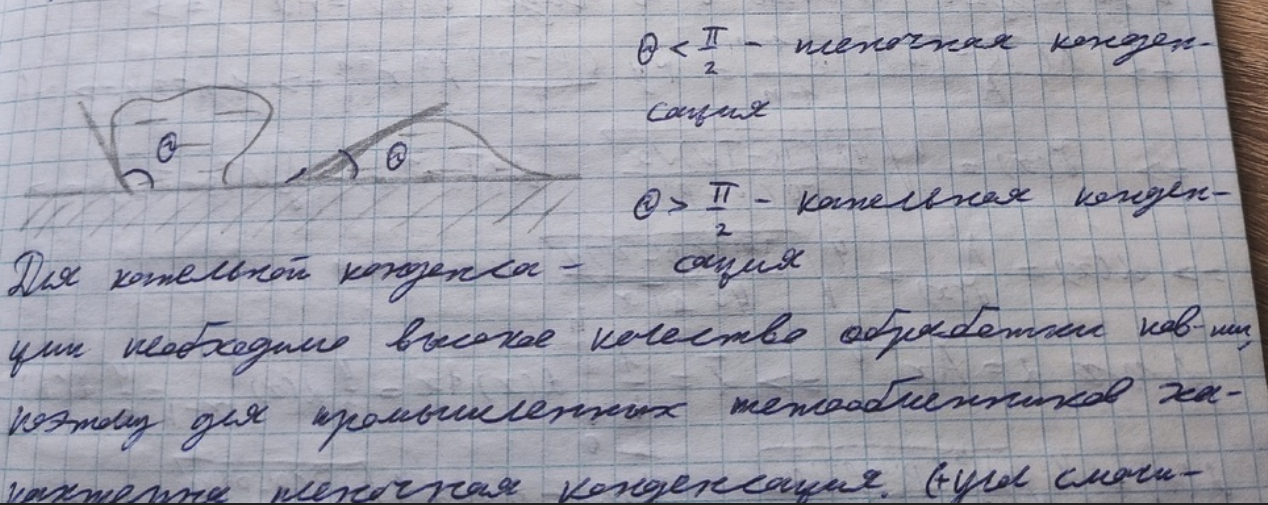 θ < π/2 - пленочная конден-
сация
θ
θ
θ > π/2 - капельная конден-
сация
Для капельной конденса-
ции необходимо высокое качество обработки пов-ти,
поэтому для промышленных теплообменников ха-
рактерна пленочная конденсация. (+угол смачи-